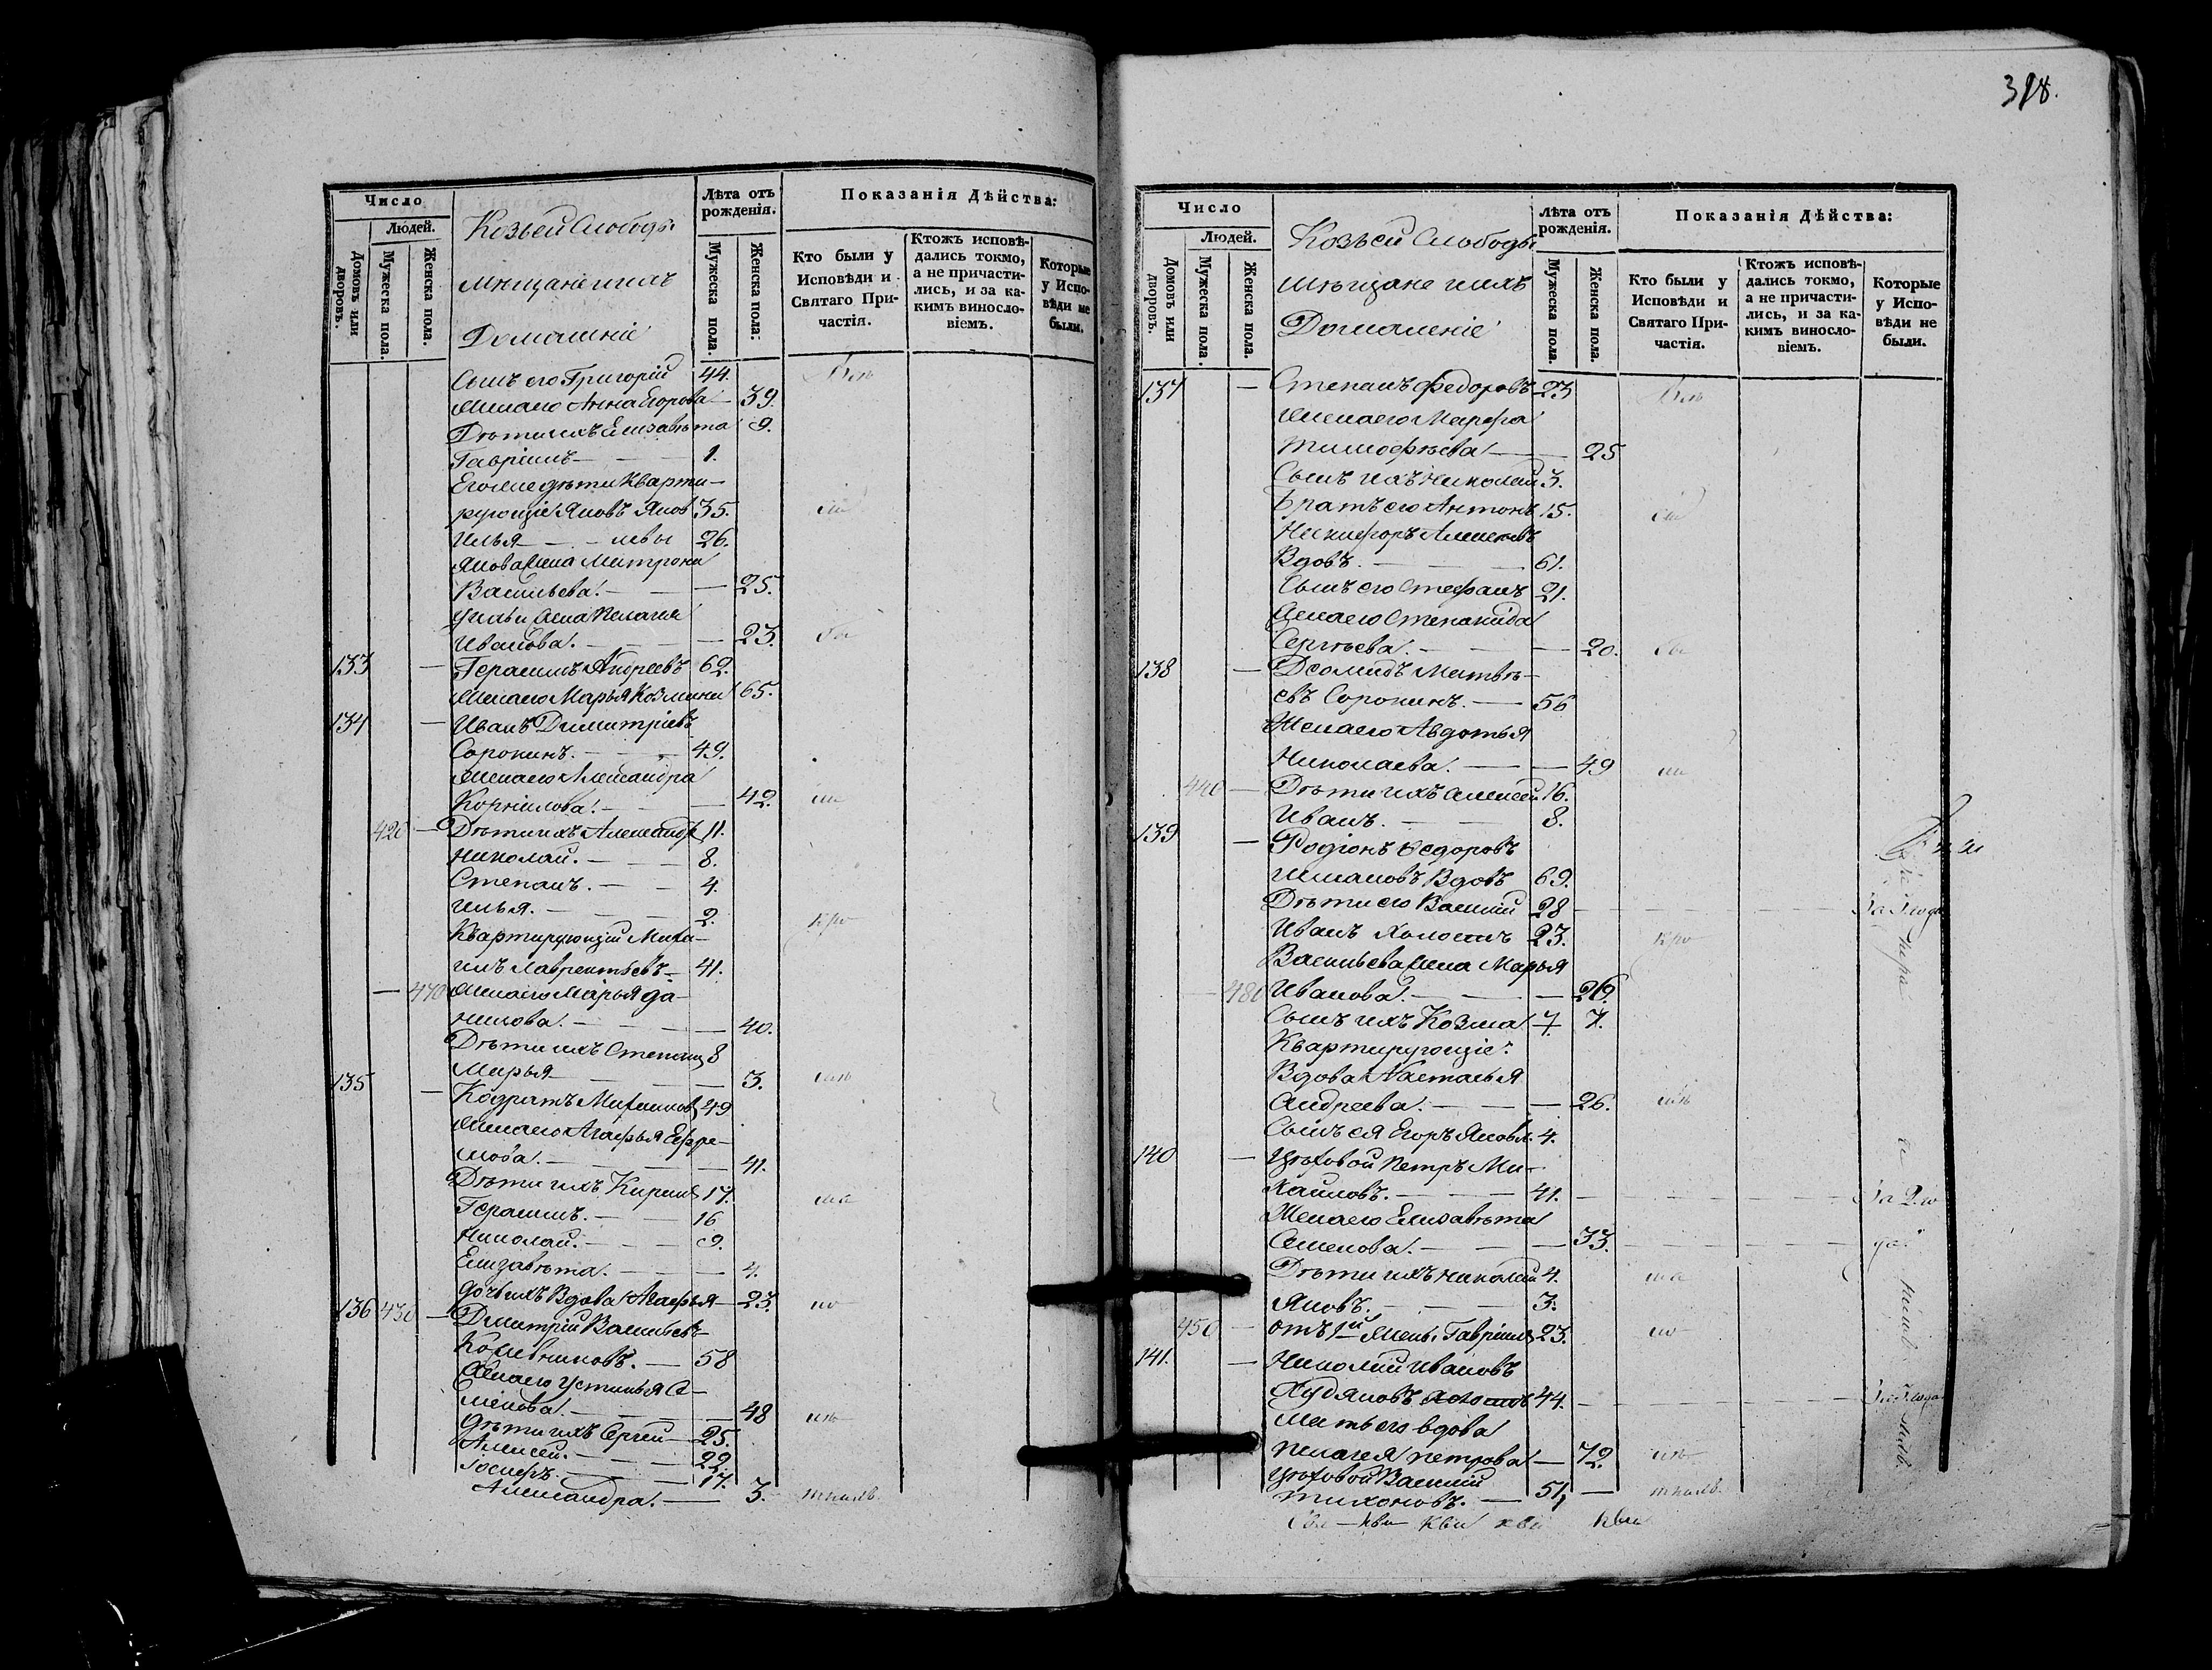 Число
Людей.
Домовъ или дворовъ.
Мужеска пола.
Женска пола.
Козьей Слободы
мещане и ихъ
Домашніе
Лѣта отъ рожденія.
Мужеска пола.
Женска пола.
Показанія Дѣйства:
Кто были у Исповѣди и Святаго Причастія.
Ктожъ исповѣ-
дались токмо,
а не причасти-
лись, и за ка-
кимъ виносло-
віемъ.
Которые
у Испо-
вѣди не
были.
Сынъ его Григорій 44.
Жена его Анна Егорова 39.
Дѣти ихъ Елизавѣта 9.
Гавріилъ 1.
Его же дѣти Кварти-
рующіе Яковъ Яков 35.
Илья левы 26.
Якова жена Матрона
Васильева. 25.
Ильи жена Пелагия
Иванова. 23.
133 Герасимъ Андреевъ 62.
Жена его Марья Козмина 65.
134 Иванъ Димитріевъ
Сорокинъ. 49.
Жена его Александра
Корнилова. 42.
420 Дѣти ихъ Александръ 11.
Николай. 8.
Степанъ. 4.
Илья. 2.
Квартирующій Миха-
илъ Лаврентьевъ 41.
470 Жена его Марья Да-
нилова. 40.
Дѣти ихъ Степанъ 8
Марья 3.
135 Кодратъ Михаиловъ 49
Жена его Агафья Ефре-
мова. 41.
Дѣти ихъ Кирилъ 17.
Герасимъ. 16
Николай. 9.
Елизавѣта. 4.
Дочь ихъ Вдова Агафья 23.
136 430 Димитрій Васильевъ
Кожевниковъ. 58
Жена его Устинья Се-
менова. 48
Дѣти ихъ Сергей 25.
Алексей. 22.
Іосифъ. 17.
Александра. 3.
318.
Число
Людей.
Домовъ или дворовъ.
Мужеска пола.
Женска пола.
Козьей Слободы
мѣщане и ихъ
Домашніе
Лѣта отъ рожденія.
Мужеска пола.
Женска пола.
Показанія Дѣйства:
Кто были у
Исповѣди и
Святаго При-
частія.
Ктожъ исповѣ-
дались токмо,
а не причасти-
лись, и за ка-
кимъ виносло-
віемъ.
Которые
у Испо-
вѣди не
были.
137 Степанъ Федоровъ 23
Жена его Марфа
Тимофѣева 25
Сынъ ихъ Николай 3.
Братъ его Антонъ 15.
Никифоръ Алексѣевъ
Вдовъ. 61.
Сынъ его Стефанъ 21.
Жена его Степанида
Сергѣева. 20.
138 Дсомидъ Матвѣ-
евъ Сорокинъ. 56
Жена его Авдотья
Николаева. 49
440 Дѣти ихъ Алексей 16.
Иванъ. 8.
139 Родіонъ Федоровъ
Вдовъ 69.
Дѣти его Василій 28
Иванъ Холостъ 23.
Васильева жена Марья
480 Иванова. 26.
Сынъ ихъ Козма 7. 7.
Квартирующіе:
Вдова Настасья
Андреева. 26.
Сынъ ея Егоръ Яковл. 4.
140 Цѣховой Петръ Ми-
хайловъ. 41. За 2. го
Жена его Елизавѣта
Семенова. 33. да.
Дѣти ихъ Николай 4.
Яковъ. 3.
450 отъ 1й жены Гавріилъ 23.
141. Николай Ивановъ
Худяковъ Холостъ 44.
Мать его вдова
Пелагея Петрова 72.
Цѣховой Василій
Тихоновъ. 51,